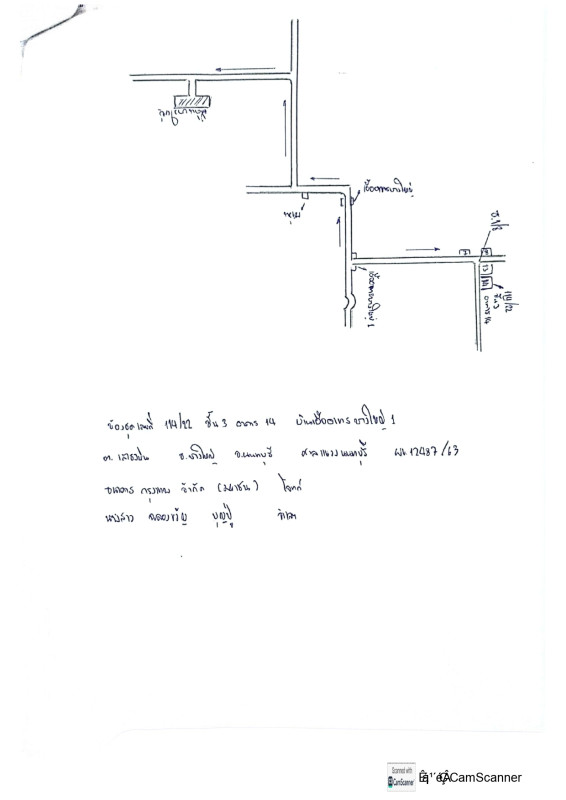 สำนักงานที่ดิน
เอื้ออาทรบางใหญ่
ซ.1/2
7
8
13
114/22
ชั้น 3
อาคาร 14
เอื้ออาทรบางใหญ่ 1
ห้องชุดเลขที่ 114/22 ชั้น 3 อาคาร 14 บ้านเอื้ออาทร บางใหญ่ 1
ต. เสาธงหิน อ.บางใหญ่ จ.นนทบุรี ศาลแขวงนนทบุรี ผบ 12487/63
ธนาคาร กรุงไทย จำกัด (มหาชน) โจทก์
นางสาว ฉลองขวัญ จำเลย
Scanned with
CamScanner
CamScanner